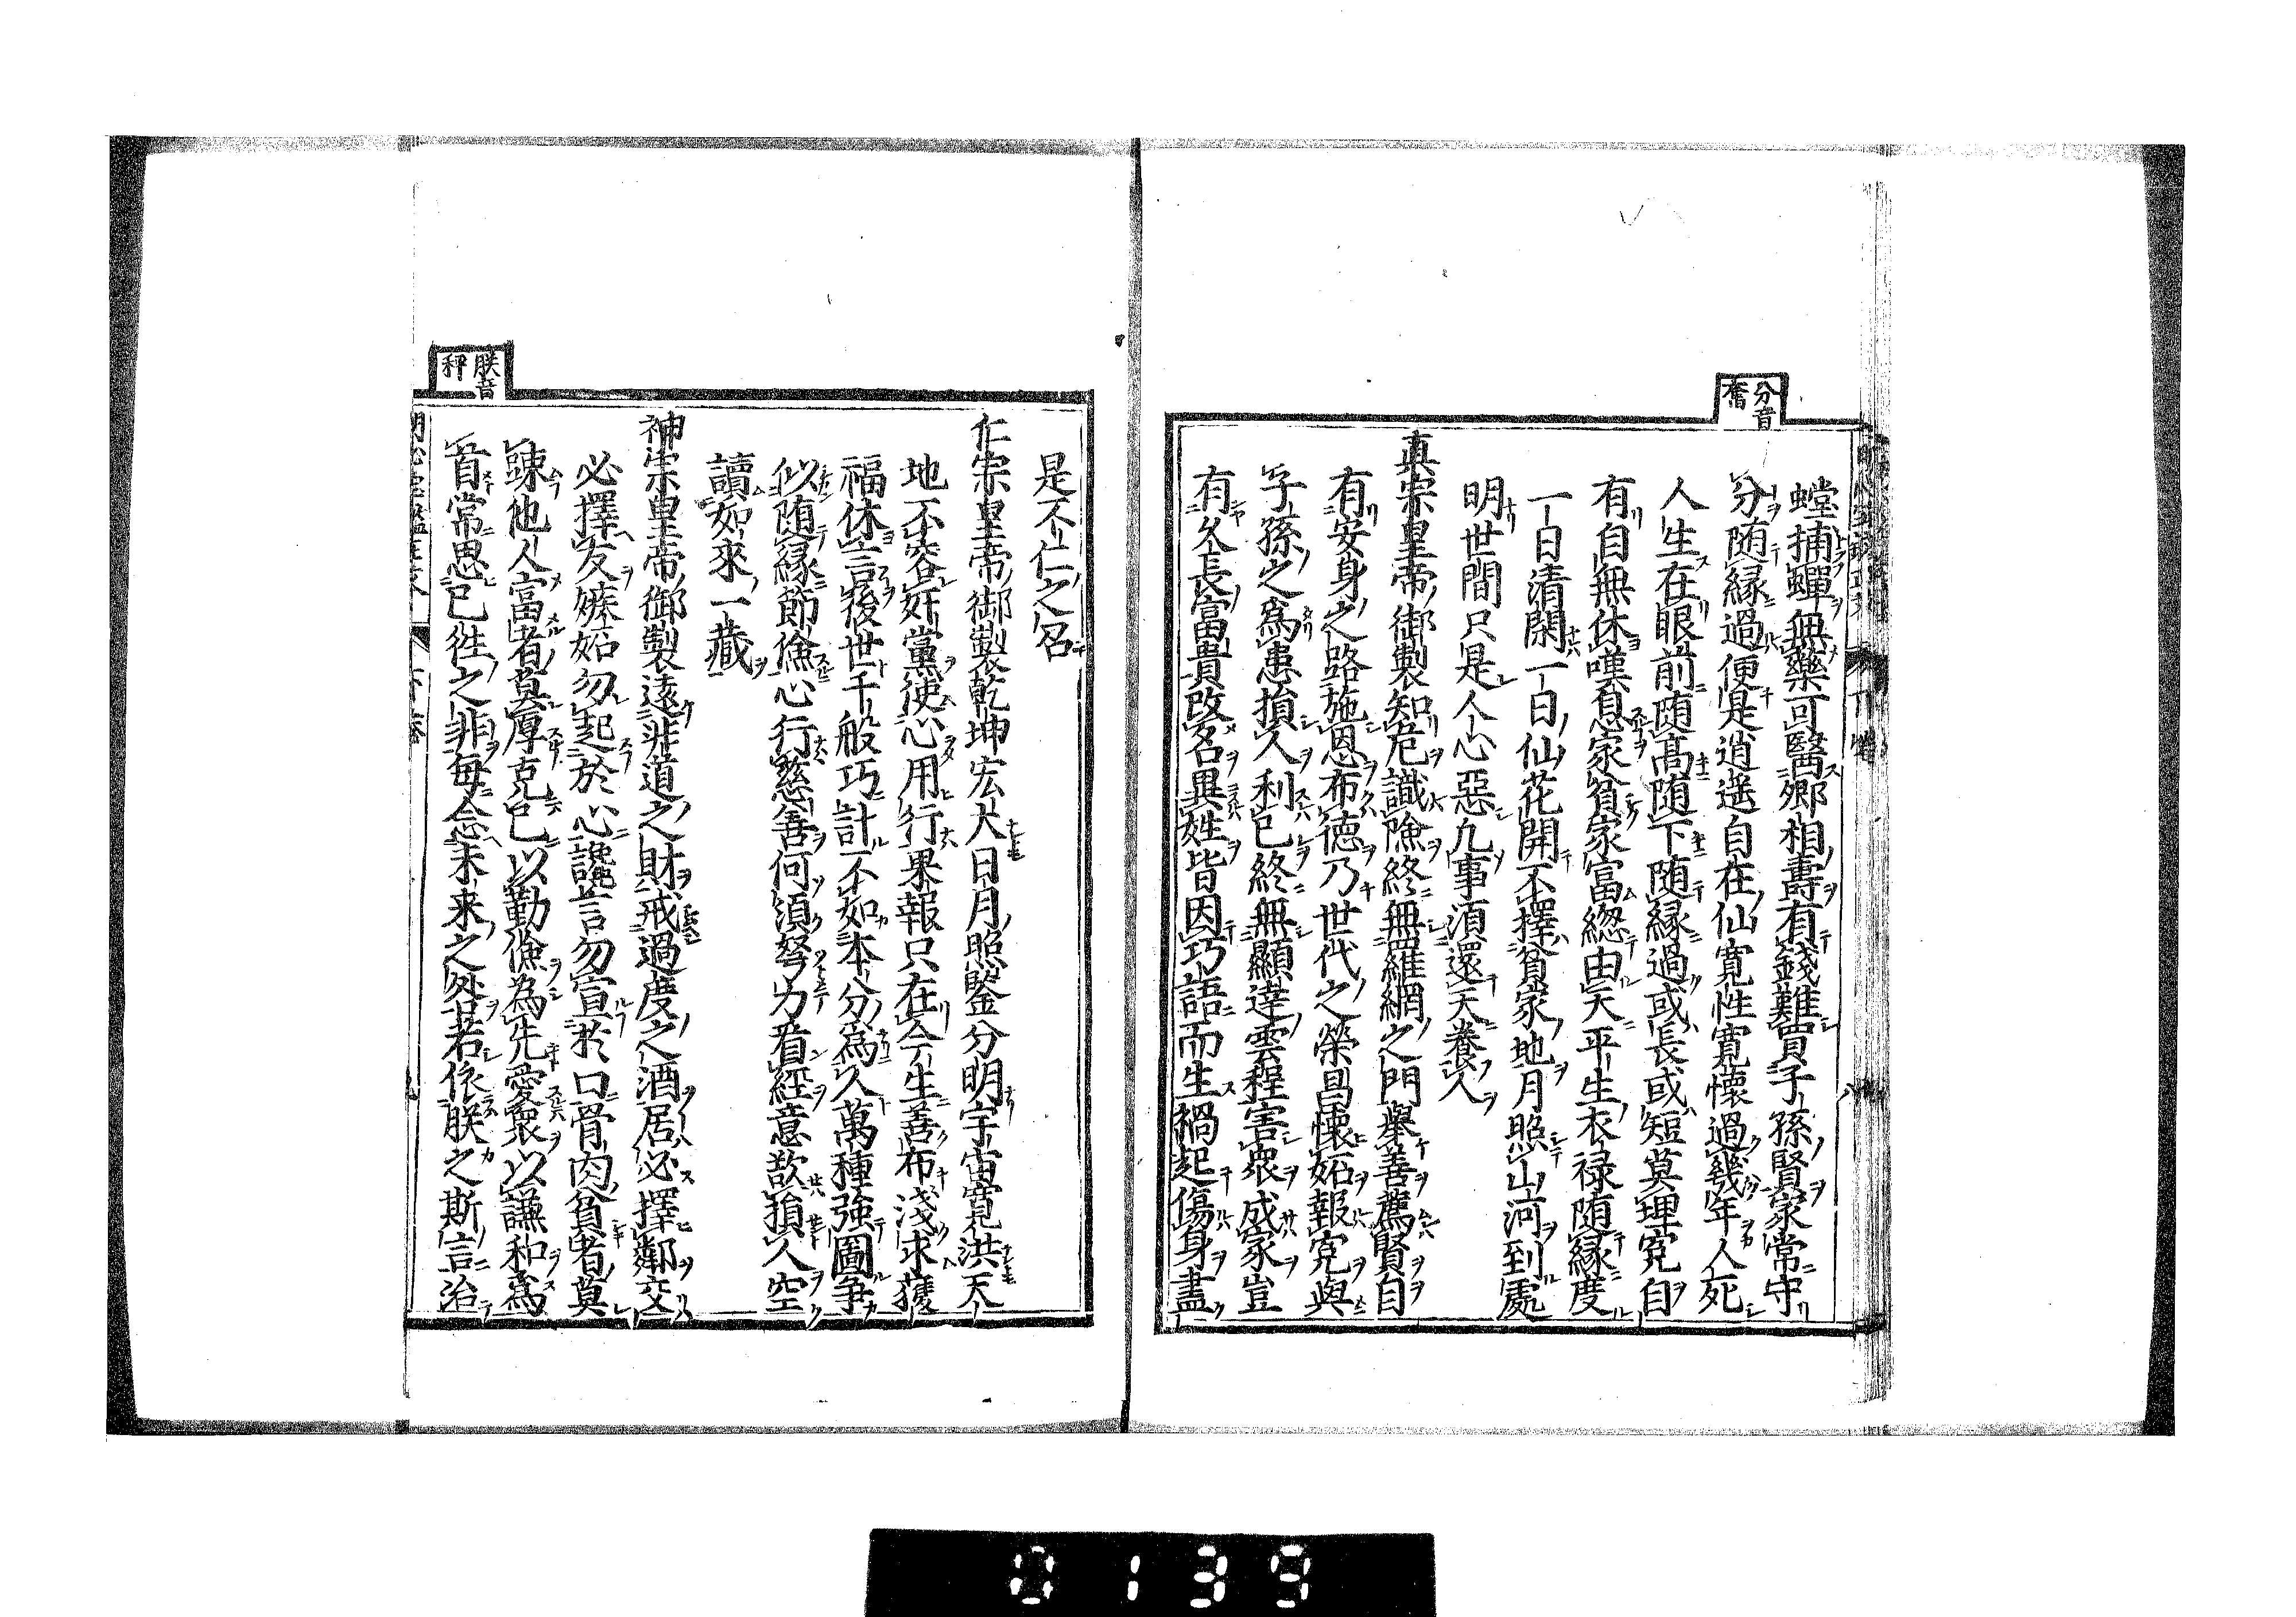 分音
奮
螳捕蟬無藥可醫卿相壽有錢難買子孫賢家常守
分随縁過便是逍遥自在仙寛性寛懐過幾年人死
人生在眼前随髙随下随縁過或長或短莫埋寃自
有自無休嘆息家貧家富緫由天平生衣禄随縁度
一日清閑一日仙花開不擇貧家地月照山河到處
明世間只是人心惡凡事須還天養人
真宗皇帝御製知危識險終無羅網之門舉善薦賢自
有安身之路施恩布德乃世代之榮昌懷妬報寃與
子孫之為患損人利己終無顯達雲程害衆成家豈
有久長冨貴改名異姓皆因巧語而生禍起傷身盡
朕音
秤
是不仁之名
仁宗皇帝御製乾坤宏大日月照鑒分明宇宙寛洪天
地不容奸黨使心用行果報只在今生善布淺求獲
福休言後世千般巧計不如本分為人萬種強圖争
似随縁節儉心行慈善何須努力看經意欲損人空
讀如來一藏
神宗皇帝御製遠非道之財戒過度之酒居必擇鄰交
必擇友嫉妬勿起於心讒言勿宣於口骨肉貧者莫
踈他人富者莫厚克己以勤儉為先愛衆以謙和為
首常思已徃之非每念未来之処若依朕之斯言治
0139